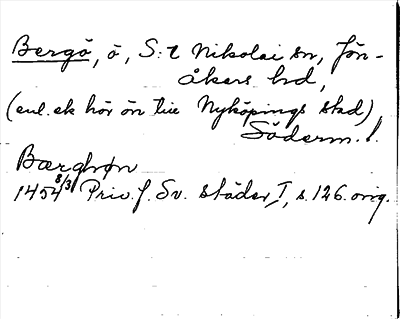 Bergö, ö, S:t Nikolai sn, Jön-
åkers hd,
(enl. ek hör ön till Nyköpings stad),
Söderm. l.
Bærghøn
1454 8/3 Priv. f. Sv. städer, I, s. 126. orig.